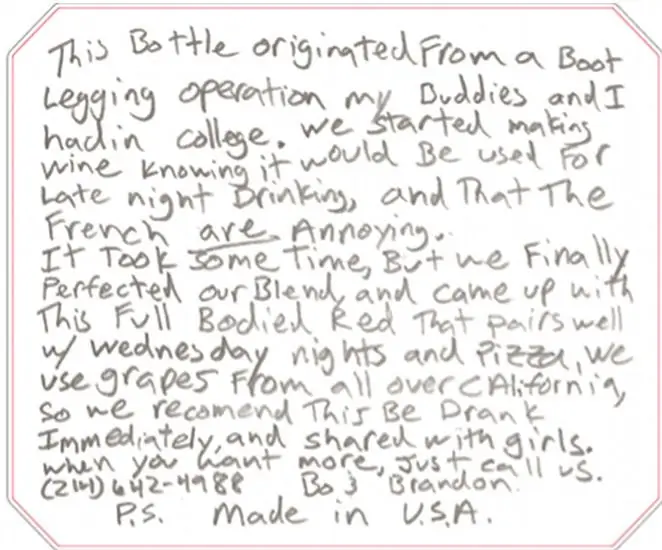 This Bottle originated From a Boot
Legging operation my Buddies and I
had in college. we started making
wine knowing it would Be used For
Late night Drinking, and That The
French are Annoying.
It Took some Time, But we Finally
Perfected our Blend, and came up with
This Full Bodied Red That pairs well
w/ wednesday nights and Pizza, we
use grapes From all over CAlifornia,
So we recomend This Be Drank
Immediately, and shared with girls.
when you want more, just call us.
(214) 642-4988 Bo & Brandon.
P.S. Made in U.S.A.